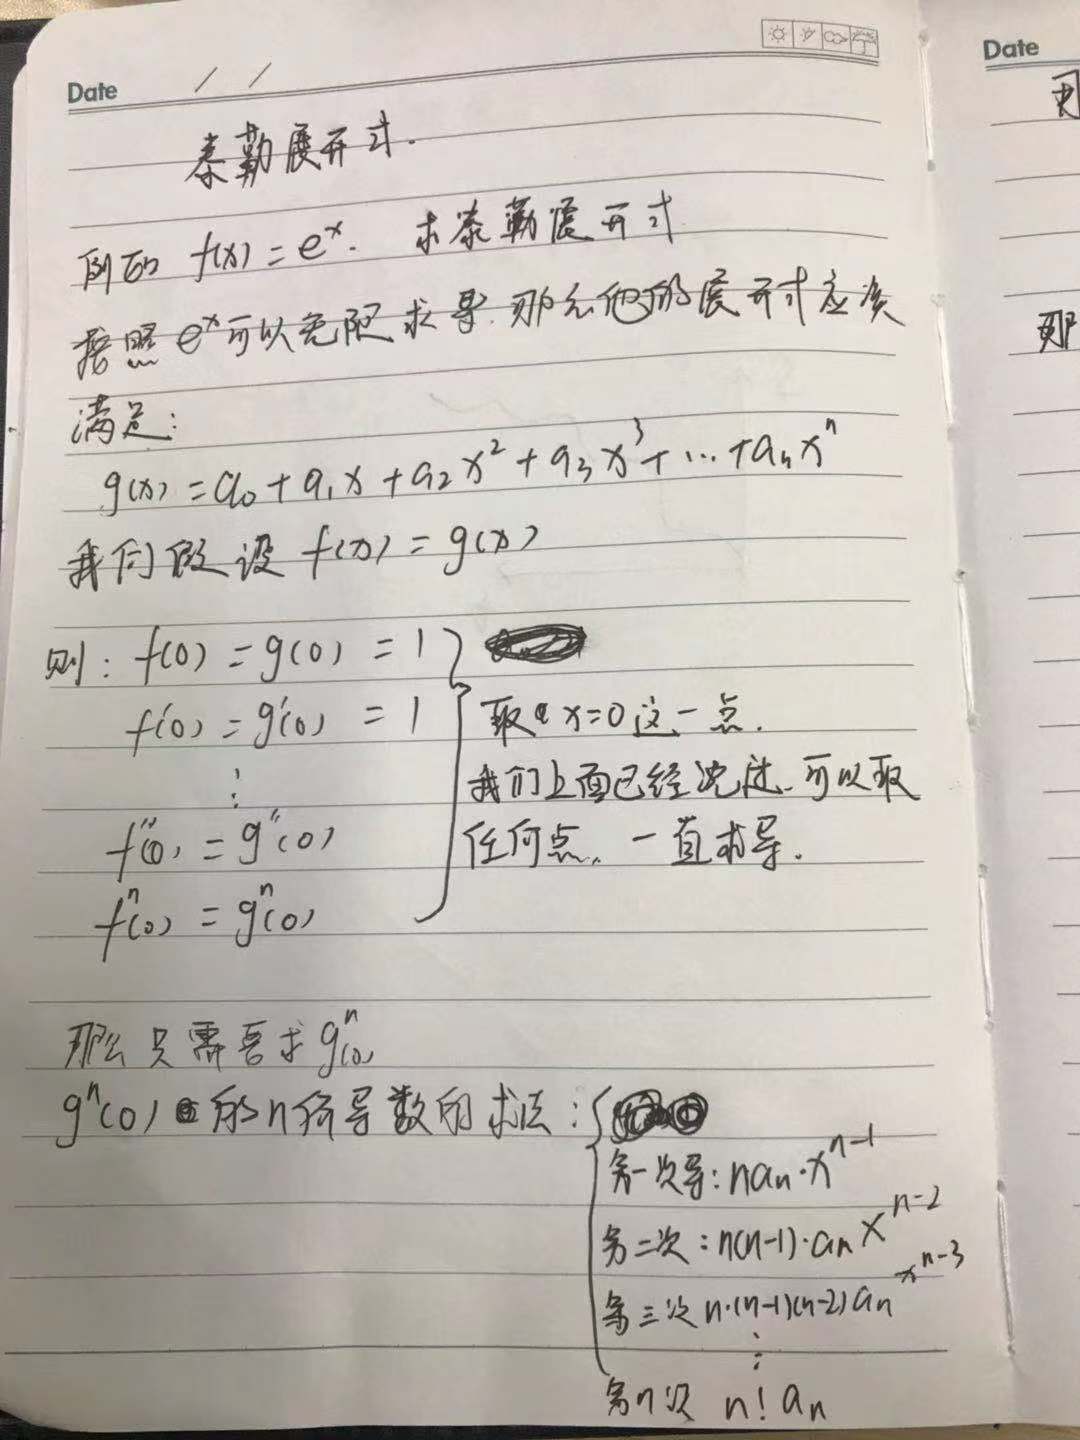 Date / /
泰勒展开式.
例如 f(x) = e^x. 求泰勒展开式
按照 e^x 可以无限求导. 那么他的展开式应该
满足:
g(x) = a₀ + a₁x + a₂x² + a₃x³ + ... + aₙxⁿ
我们假设 f(x) = g(x)
则: f(0) = g(0) = 1
f'(0) = g'(0) = 1
⋮
f''(0) = g''(0)
fⁿ(0) = gⁿ(0)
取 x=0 这一点.
我们上面已经说过. 可以取
任何点. 一直求导.
那么只需要求 gⁿ(0)
gⁿ(0) 的n阶导数的求法:
第一次导: naₙ·x^{n-1}
第二次: n(n-1)·aₙx^{n-2}
第三次 n·(n-1)(n-2)aₙx^{n-3}
⋮
第n次 n! aₙ
Date
那